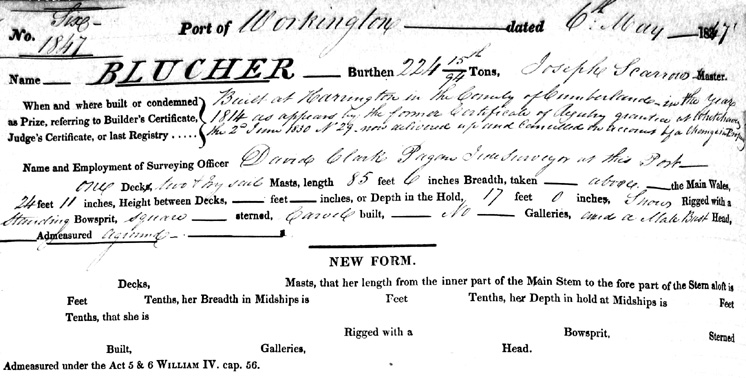 No. Six
1847
Port of Workington dated 6th May 1847
Name BLUCHER Burthen 224 15th/94 Tons, Joseph Scarrow Master.
When and where built or condemned as Prize, referring to Builder's Certificate, Judge's Certificate, or last Registry .....
Built at Harrington in the County of Cumberland in the Year
1814 as appears by the former Certificate of Registry granted at Whitehaven
the 2d June 1830 No 29 now delivered up and Cancelled on account of a Change in
Name and Employment of Surveying Officer David Clark Pagan Tide Surveyor at this Port
one Decks, two & Try sail Masts, length 85 feet 6 inches Breadth, taken above the Main Wales,
24 feet 11 inches, Height between Decks, — feet — inches, or Depth in the Hold, 17 feet 0 inches, Snow Rigged with a
Standing Bowsprit, square sterned, Carvel built, No Galleries, and a Male Bust Head,
Admeasured aground
NEW FORM.
Decks, Masts, that her length from the inner part of the Main Stem to the fore part of the Stern aloft is
Feet Tenths, her Breadth in Midships is Feet Tenths, her Depth in hold at Midships is Feet
Tenths, that she is
Rigged with a Bowsprit, Sterned
Built, Galleries, Head.
Admeasured under the Act 5 & 6 WILLIAM IV. cap. 56.